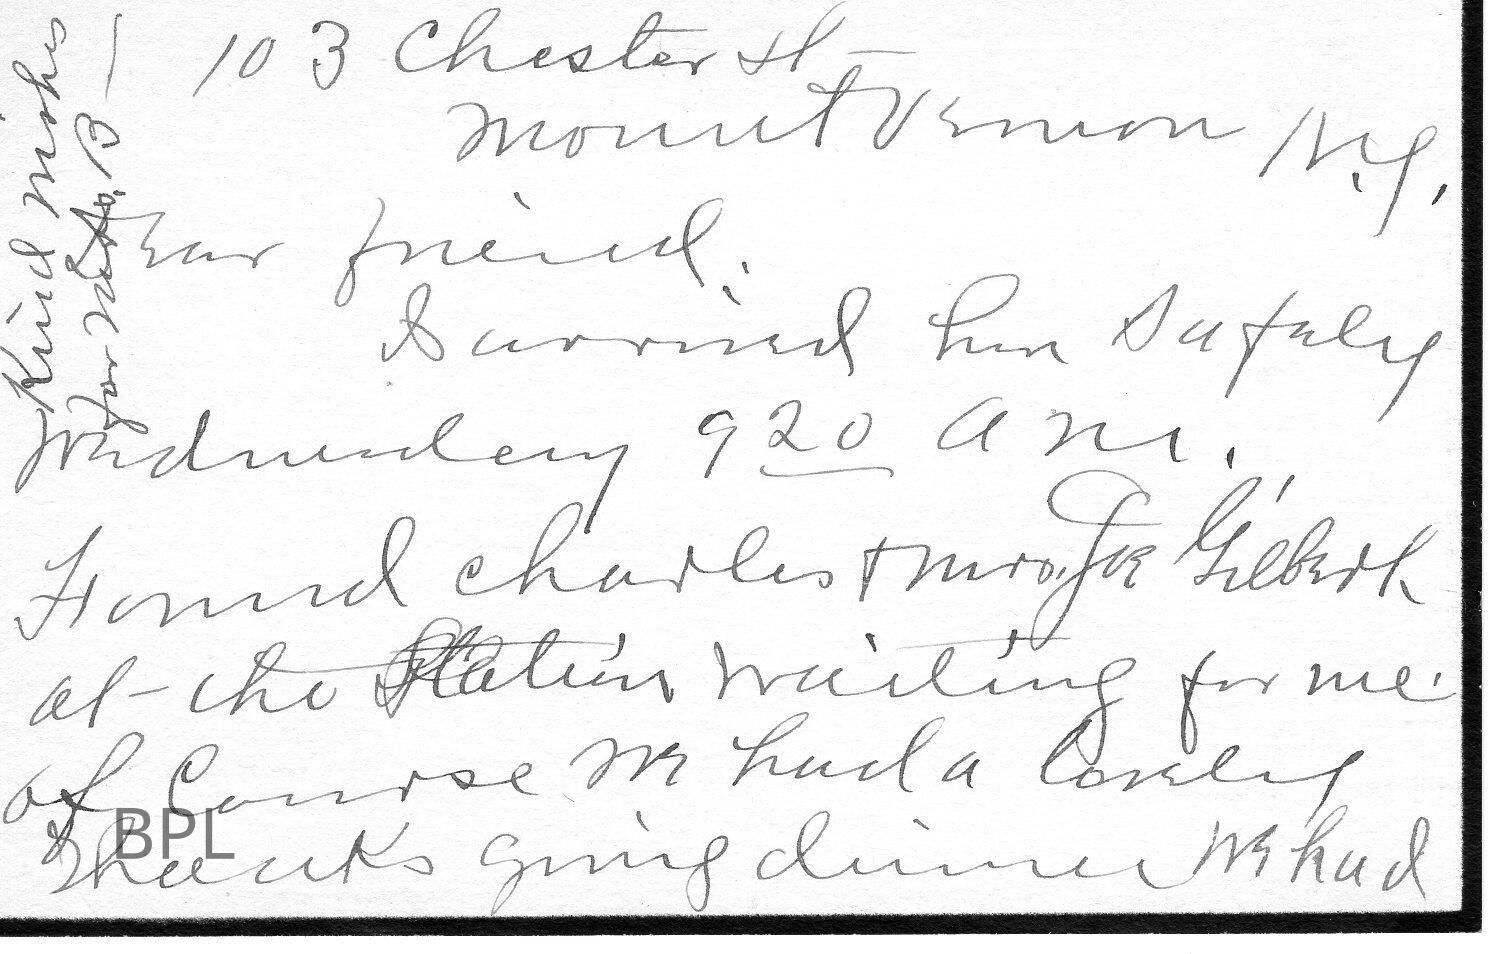 103 Chester St
Mount Vernon N.Y.
Dear friend.
I arrived here Safely
Wednesday 9 20 a m.
Found Charles + Mrs. Gilbert
at the Station waiting for me.
of Course we had a lovely
thanks giving dinner we had
Kind wishes
for Mrs. B
BPL